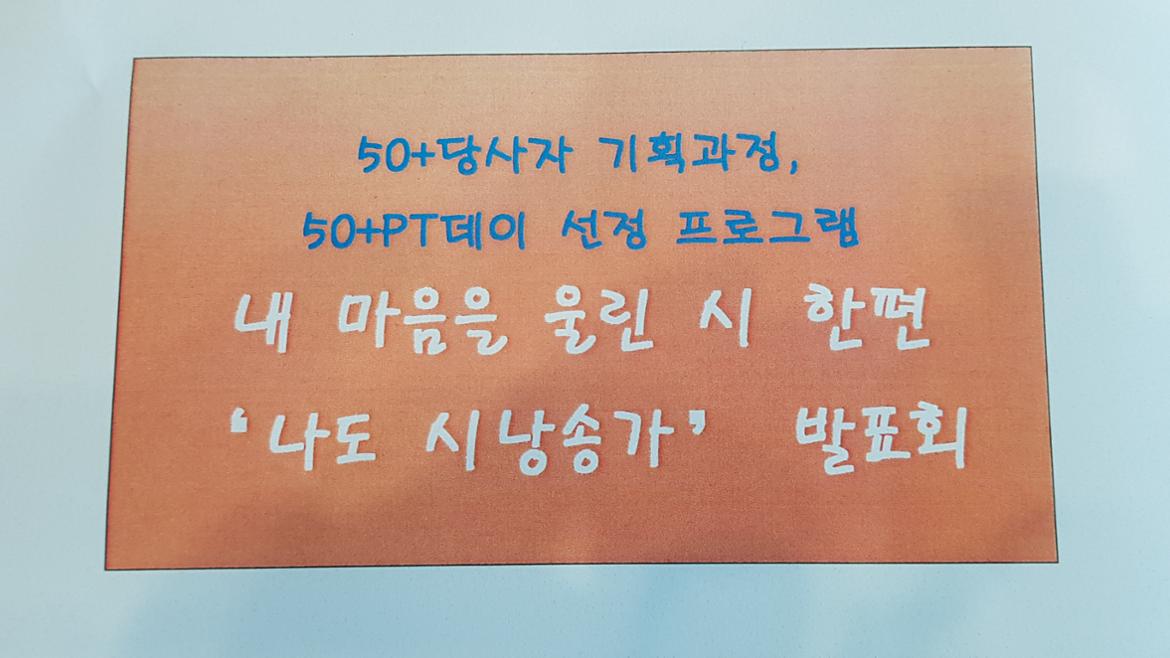 50+당사자 기획과정,
50+PT데이 선정 프로그램
내 마음을 울린 시 한편
‘나도 시낭송가’ 발표회